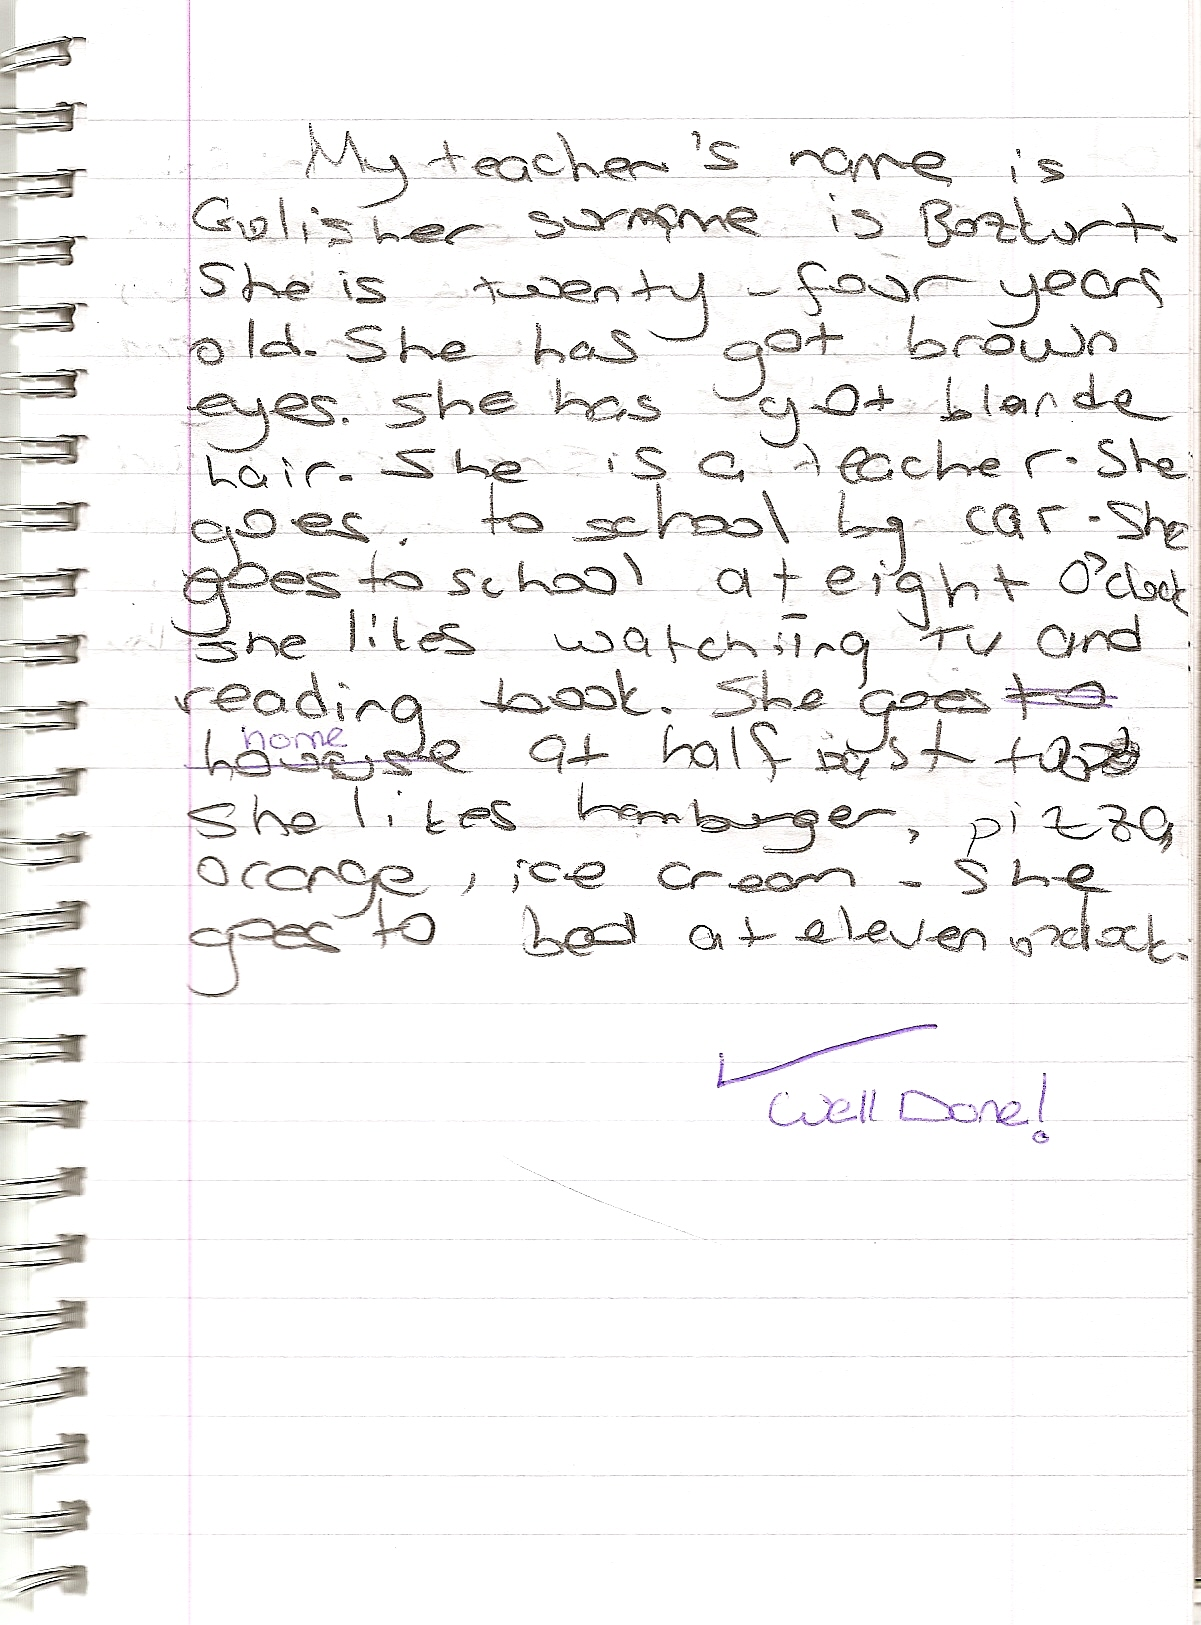 My teacher's name is
Gulisher surname is Bozkurt.
She is twenty-four years
old. She has got brown
eyes. She has got blande
hair. She is a teacher. She
goes. to school by car. She
goes to school at eight O'clock
she likes watching TV and
reading book. She goes to
home
house at half past two
She likes hamburger, pizza,
orange, ice cream. She
goes to bed at eleven o'clock.
Well Done!